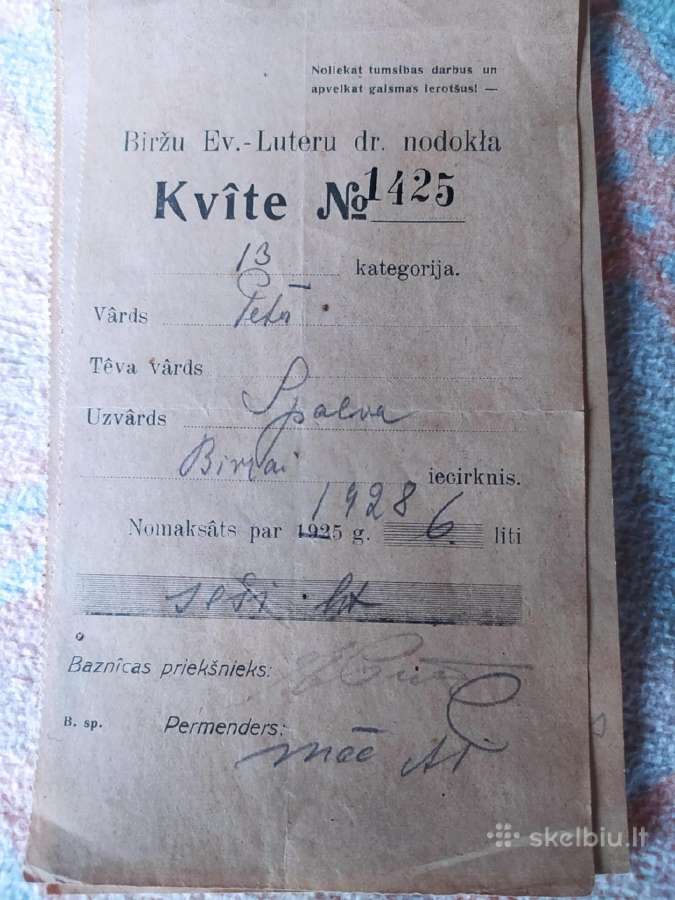 Noliekat tumsibas darbus un
apvelkat gaismas ierotšus! —
Biržu Ev.-Luteru dr. nodokla
Kvîte № 1425
13 kategorija.
Vârds
Têva vârds
Uzvârds Spalva
Biržai iecirknis.
Nomaksâts par 1925 g. 1928 6. liti
seši lit
Baznîcas priekšnieks:
B. sp. Permenders:
skelbiu.lt